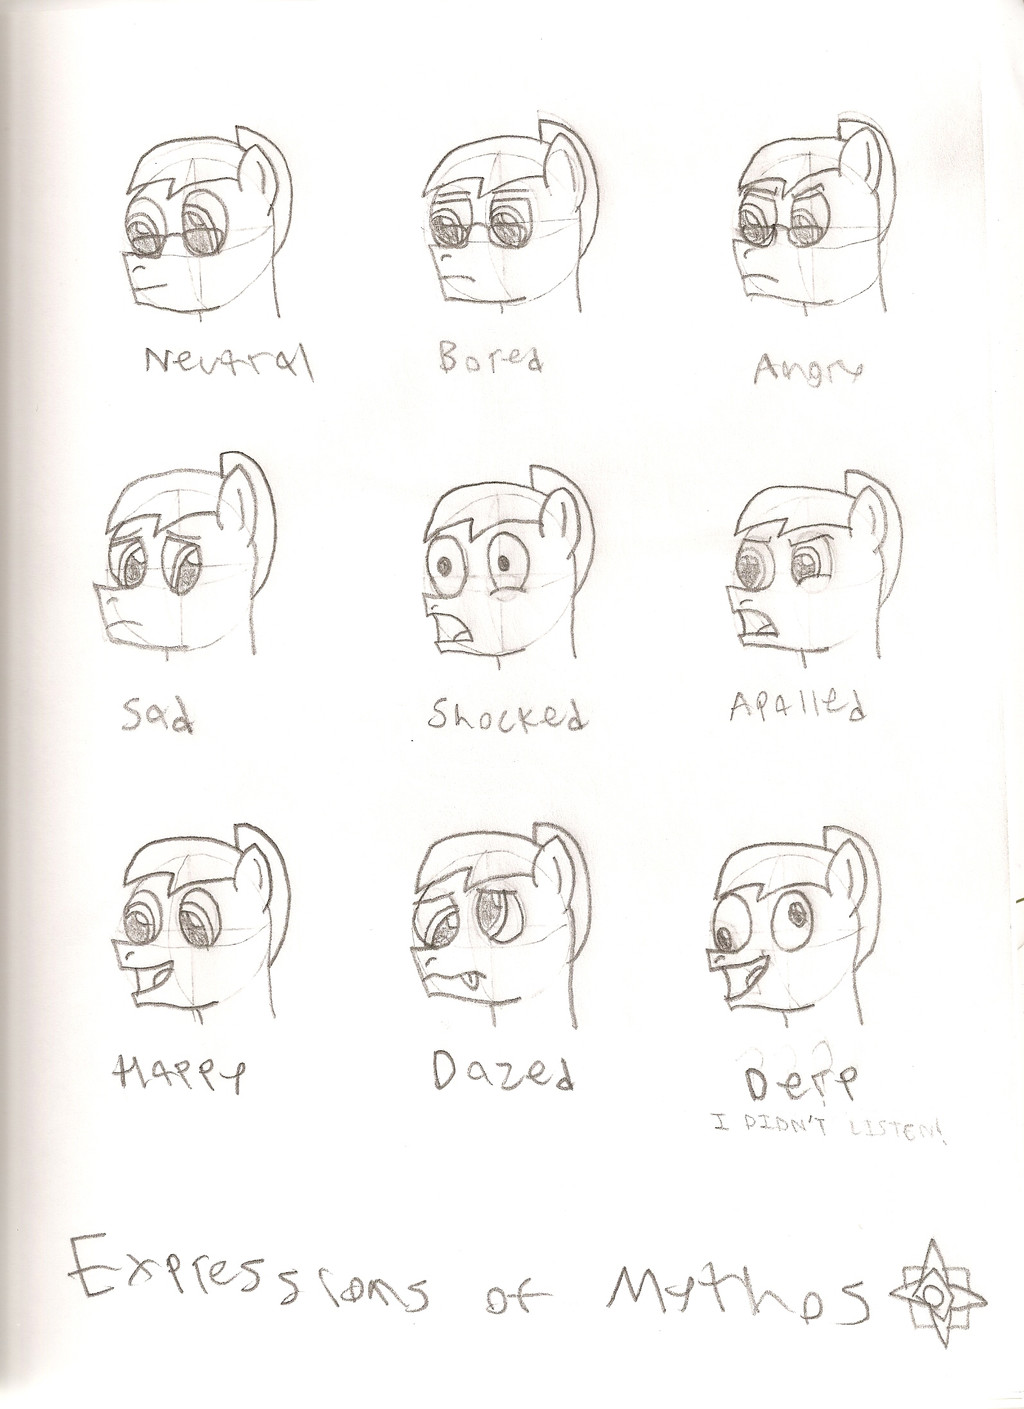 Neutral Bored Angry
Sad Shocked Apalled
Happy Dazed Derp
I DIDN'T LISTEN!
Expressions of Mythos